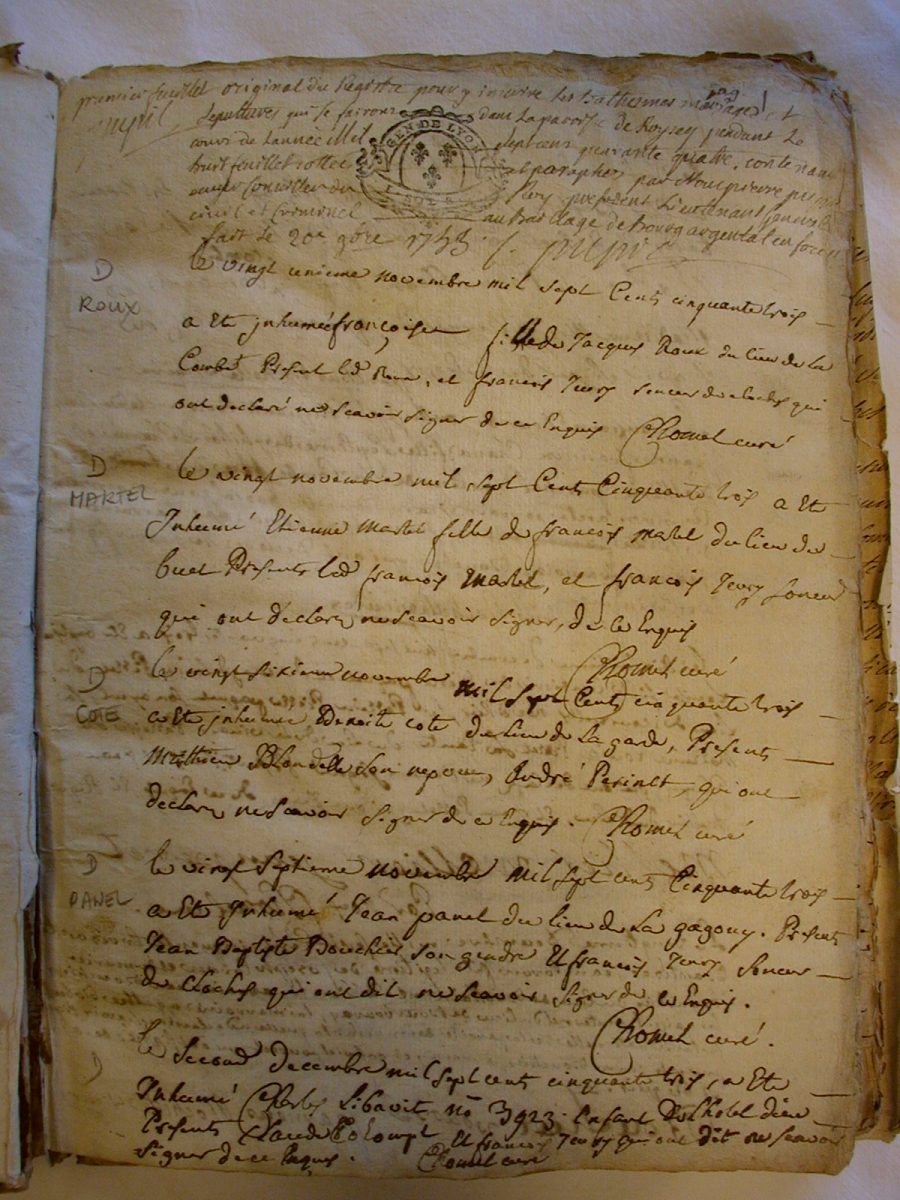 premier feuillet original du Registre pour y inscrire les bathesmes mariages et
pupil Sepultures qui se fairont dans la parroisse de Roysey pendant Le
cours de Lannée Mil Sept cens quatre, contenant
huit feuillet cottée et paraphés par Nous pierre
Conseiller du Roy president Lieutenant General
civil et Criminel au Bailliage de Bourg argental en forez
fait Le 20e 9bre 1753. pupil
GEN DE LYON
D
ROUX
Le vingt unieme novembre mil sept Cents cinquante trois
a Eté inhumée françoise fille de Jacques Roux du lieu de la
Combe Present led Roux, et francois Jeury soneur de cloches qui
ont declaré ne scavoir signer de ce Enquis Chomel curé
D
MARTEL
Le vingt novembre mil sept Cents Cinquante trois a Eté
Inhumé Etienne Martel fille de francois Martel du lieu de
buet Presents led francois Martel, et francois Jeury soneur
qui ont declaré ne scavoir signer, de ce Enquis
Chomel curé
D
COTE
Le vingt sixieme novembre mil sept Cents cinquante trois
a Eté inhumée Benoit cote du lieu de La garde, Presents
Mathieu Blondelle son nepveu, André Perinet, qui ont
declaré ne scavoir signer de ce Enquis. Chomel curé
D
PANEL
Le vingt septieme novembre mil sept cents Cinquante trois
a Eté Inhumé Jean panel du lieu de La gagouy. Presents
Jean Baptiste Boucher son gendre Et francois Jeury soneur
de cloches qui ont dit ne scavoir signer de ce Enquis.
Chomel curé.
D
Le second decembre mil sept cents cinquante trois, a Eté
Inhumé Charles Libavit no 3923 Enfant De Lhotel dieu
Presents Claude Colomp Et francois Jeury qui ont dit ne scavoir
signer de ce Enquis. Chomel curé